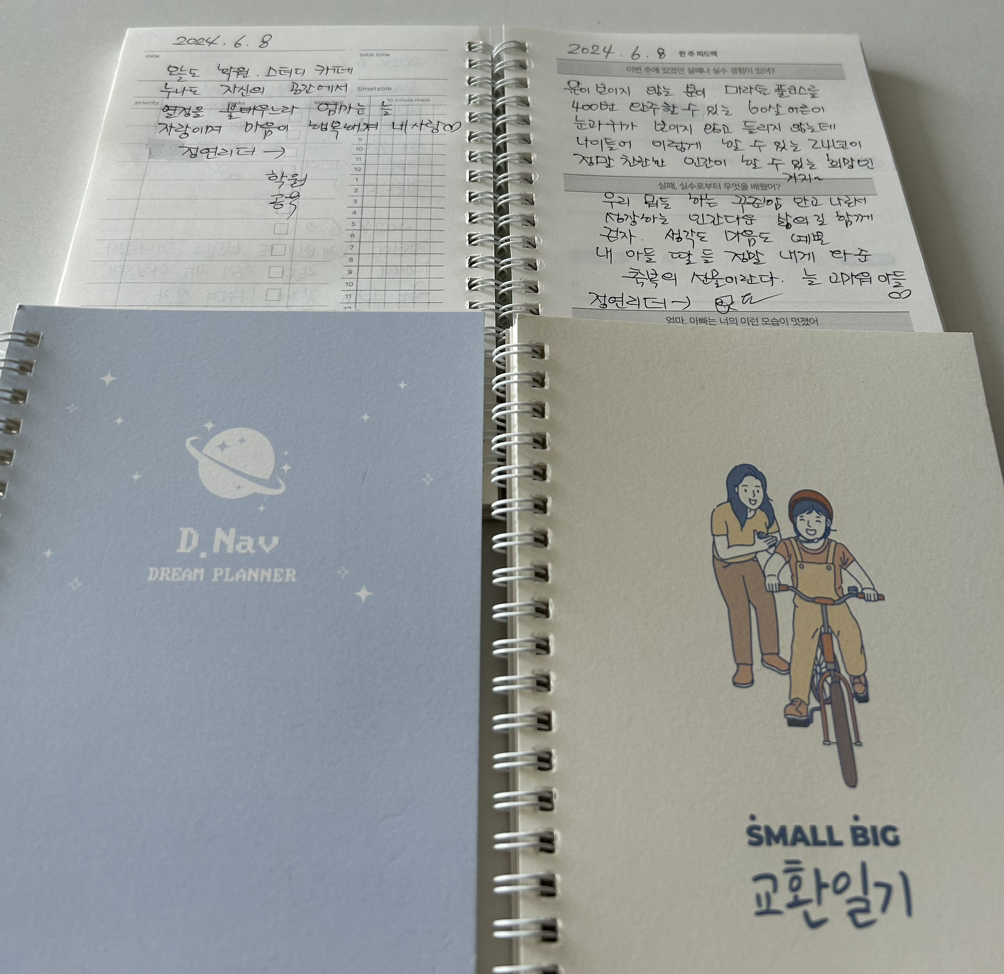 2024. 6. 8
date
total time
오늘도 학원. 스터디 카페
누나도 자신의 공간에서
timetable
priority
tasks
10 minute check
열정을 불태우느라 엄마는 늘
자랑이며 마음이 행복해져 내사랑♡
정연리더 →
학원
공육
10
11
12
1
2
3
4
5
6
7
8
9
10
11
2024. 6. 8 한 주 피드백
이번 주에 있었던 실패나 실수 경험이 있어?
눈이 보이지 않는 분이 마라톤 풀코스을
400번 완주할 수 있는 60살 어른이
눈과 귀가 보이지 않고 들리지 않는데
나이들어 이렇게 할 수 있는
정말 찬란한 인간이 할 수 있는 희망인
거지~
실패, 실수로부터 무엇을 배웠어?
우리 뭐든 하는 꾸준함 안고 나눠서
생각하는 인간다운 삶의 길 함께
걷자. 생각도 마음도 예쁜
내 아들 딸들 정말 내게 와준
축복의 선물이란다. 늘 고마워 아들
♡
정연리더 →
엄마, 아빠는 너의 이런 모습이 멋졌어
D.Nav
DREAM PLANNER
SMALL BIG
교환일기